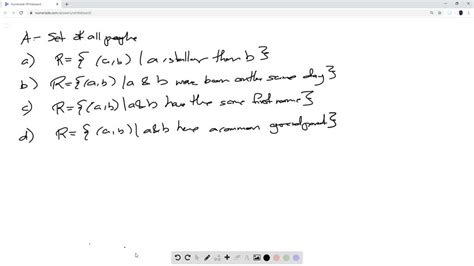 A - Set of all people
a) R = { (a,b) | a is taller than b }
b) R = { (a,b) | a & b were born on the same day }
c) R = { (a,b) | a & b have the same first name }
d) R = { (a,b) | a & b have a common grandparent }